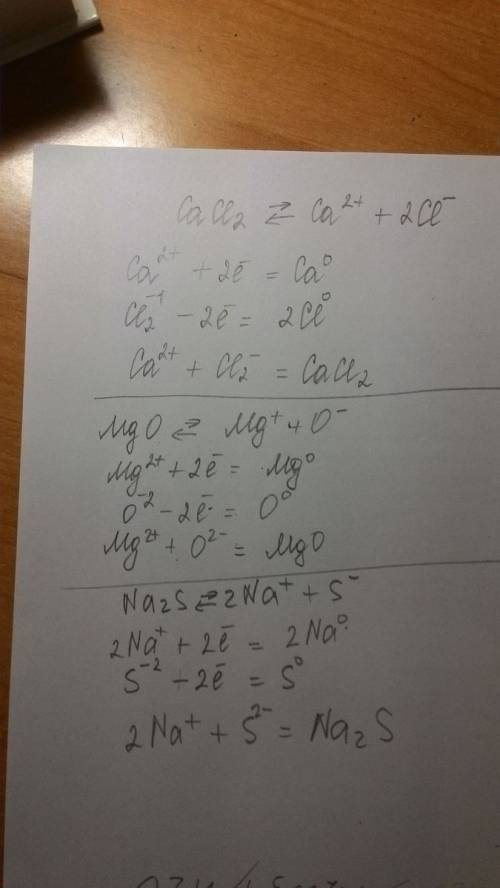 CaCl₂ ⇄ Ca²⁺ + 2Cl⁻
Ca²⁺ + 2ē = Ca⁰
Cl₂⁻¹ - 2ē = 2Cl⁰
Ca²⁺ + Cl₂⁻ = CaCl₂
MgO ⇄ Mg⁺ + O⁻
Mg²⁺ + 2ē = Mg⁰
O⁻² - 2ē = O⁰
Mg²⁺ + O²⁻ = MgO
Na₂S ⇄ 2Na⁺ + S⁻
2Na⁺ + 2ē = 2Na⁰
S⁻² - 2ē = S⁰
2Na⁺ + S²⁻ = Na₂S